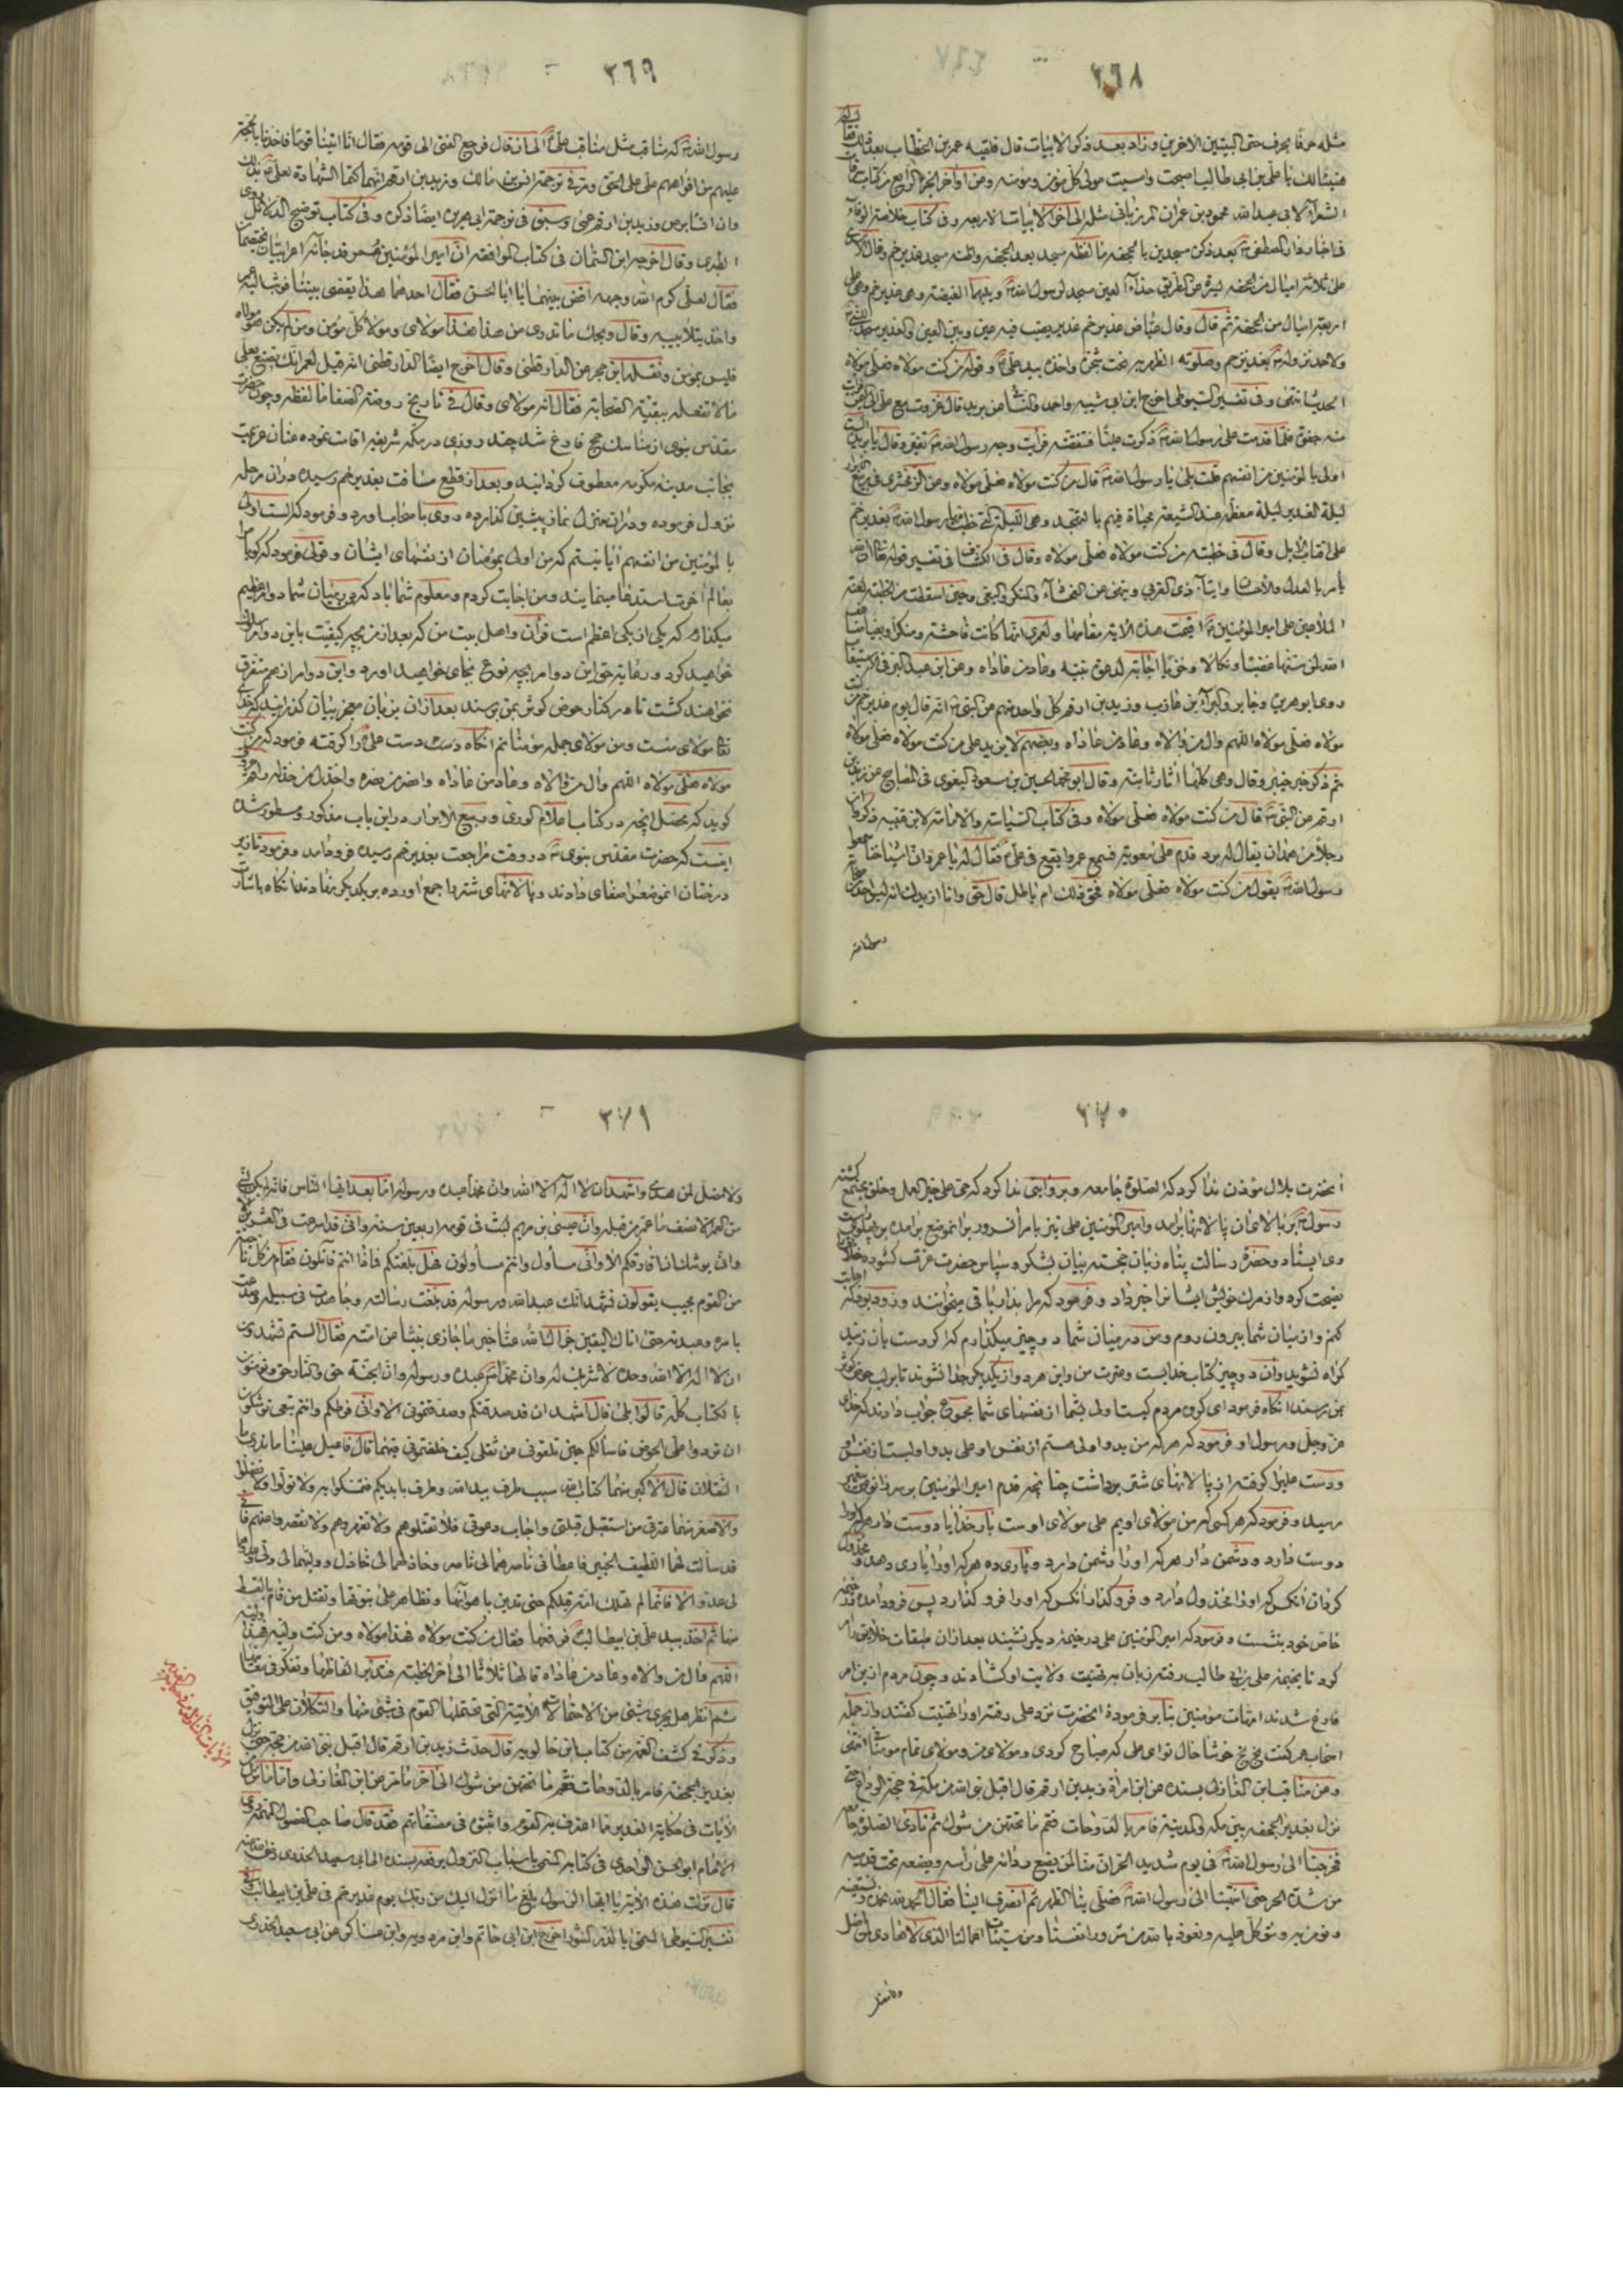 ٣٦٨
مثله حرفا بحرف حتى البيتين الاخرين وزاد بعد ذكر الابيات قال فلقيه عمر بن الخطاب بعد ذلك فقال له
هنيئا لك يا علي بن ابي طالب اصبحت وامسيت مولى كل مؤمن ومؤمنه ومن اواخر الجزء الرابع من كتاب
الشعراء لابي عبد الله محمود بن عمران المرزباني مثله الى اخر الابيات الاربعه وفي كتاب خلاصة الوفاء
في اخبار دار المصطفى بعد ذكر مسجدين بالجحفه ما لفظه مسجد بعد الجحفه واظنه مسجد غدير خم وقال
على ثلاثة اميال من الجحفه يسرة عن الطريق حذاء العين مسجد لرسول الله ويليها الغيضه وهي غدير خم وهي على
اربعة اميال من الجحفة ثم قال وقال عياض غدير خم غدير يصب فيه عين وبين العين والغدير مسجد
ولاحمد نزوله بغدير خم وصلوته الظهر به تحت شجرة واخذه بيد علي وقوله من كنت مولاه فعلي مولاه
الحديث انتهى وفي تفسير السيوطي اخرج ابن ابي شيبه واحمد والنسائي عن بريده قال غزوت مع علي اليمن فرأيت
منه جفوة فلما قدمت على رسول الله ذكرت عليا فتنقصته فرأيت وجه رسول الله تغير وقال يا بريده الست
اولى بالمؤمنين من انفسهم قلت بلى يا رسول الله قال من كنت مولاه فعلي مولاه وعن الزمخشري في ربيع الابرار
ليلة الغدير ليلة معظمه عند الشيعة محياة فيهم بالتهجد وهي الليلة التي خطب فيها رسول الله بغدير خم
على اقتاب الابل وقال في خطبته من كنت مولاه فعلي مولاه وقال في الكشاف في تفسير قوله تعالى ان الله
يأمر بالعدل والاحسان وايتاء ذي القربى وينهى عن الفحشاء والمنكر والبغي وحين اسقطت من الخطبة لعنة
الملاعين على امير المؤمنين اقيمت هذه الاية مقامها ولعمري انها كانت فاحشة ومنكرا وبغيا ضاعف
الله لمن سنها غضبا ونكالا وخزيا اجابة لدعوة نبيه وعاد من عاداه وعن ابن عبد البر في الاستيعاب
روى ابو هريره وجابر والبراء بن عازب وزيد بن ارقم كل واحد منهم عن النبي انه قال يوم غدير خم من كنت
مولاه فعلي مولاه اللهم وال من والاه وعاد من عاداه وبعضهم لا يزيد على من كنت مولاه فعلي مولاه
ثم ذكر خبر خيبر وقال وهي كلها اثار ثابته وقال ابو محمد الحسين بن مسعود البغوي في المصابيح عن زيد بن
ارقم عن النبي قال من كنت مولاه فعلي مولاه وفي كتاب السياسه والامامه لابن قتيبه ذكروا ان
رجلا من همدان يقال له برد قدم على معوية فسمع عمروا يقع في علي فقال له يا عمرو ان اشياخنا سمعوا
رسول الله يقول من كنت مولاه فعلي مولاه فحق ذلك ام باطل قال حق وانا ازيدك انه ليس احد من صحابة
رسول الله
٣٦٩
رسول الله له مناقب مثل مناقب علي الى ان قال فرجع الفتى الى قومه فقال انا اتينا قوما فاخذنا بالحجة
عليهم من افواههم علي على الحق ومر في ترجمة انس بن مالك وزيد بن ارقم انهما كتما الشهادة لعلي
الطبري وقال اخرجه ابن السمان في كتاب الموافقه ان امير المؤمنين عمر قد جائه اعرابيان يختصمان
فقال لعلي كرم الله وجهه اقض بينهما يا ابا الحسن فقال احدهما هذا يقضي بيننا فوثب اليه عمر
واخذ بتلابيبه وقال ويحك ما تدري من هذا هذا مولاي ومولى كل مؤمن ومن لم يكن مولاه
فليس بمؤمن ونقله ابن حجر عن الدارقطني وقال اخرج ايضا الدارقطني انه قيل لعمر انك تصنع بعلي
ما لا تفعله ببقية الصحابة فقال انه مولاي وقال في تاريخ روضة الصفا ما لفظه وچون حضرت
مقدس نبوي از مناسك حج فارغ شد چند روزي در مكه شريفه اقامت نموده عنان عزيمت
بجانب مدينه مكرمه معطوف گردانيد وبعد از قطع مسافت بغدير خم رسيده دران مرحله
نزول فرموده ودران منزل نماز پيشين گذارده روي باصحاب آورد وفرمود كه الست اولى
بالمؤمنين من انفسهم ايا نيستم كه من اولى بمؤمنان از نفسهاي ايشان وقولي فرمود كه گويا مرا
بعالم اخرت استدعا مينمايند ومن اجابت كردم ومعلوم شما باد كه در ميان شما دو امر عظيم
ميگذارم كه يكي از يكي اعظم است قرآن واهل بيت من كه بعد از من بچه كيفيت باين دو امر سلوك
خواهيد كرد ورعاية حق اين دو امر بچه نوع بجاي خواهيد اورد واين دو امر از هم متفرق
نخواهند گشت تا در كنار حوض كوثر بمن رسند بعد ازان بزبان معجز بيان گذرانيد كه خداي
تعالى مولاي منست ومن مولاي جمله مؤمنانم انگاه دست علي را گرفته فرمود كه من كنت
مولاه فعلي مولاه اللهم وال من والاه وعاد من عاداه وانصر من نصره واخذل من خذله
گويد كه محصل انچه در كتاب اعلام الورى وربيع الابرار در اين باب مذكور ومسطور شده
اينست كه حضرت مقدس نبوي در وقت مراجعت بغدير خم رسيده فرود امد وفرمود تا زير
درختان انموضع را صفاي دادند وپالانهاي شتر را جمع اورده بر يكديگر نهادند انگاه باشارت
٣٧٠
آنحضرت بلال مؤذن ندا كرد كه الصلوة جامعه وبروايتي ندا كرد كه حي على خير العمل وخلق مجتمع گشته
رسول بر بالاي ان پالانها برآمد وامير المؤمنين علي نيز بامر آن سرور بر انموضع برامده بر پهلوي
وي ايستاد وحضرت رسالت پناه زبان خجسته بيان بشكر وسپاس حضرت عزت گشود
نصيحت كرد واز مرگ خويش ايشانرا خبر داد وفرمود كه مرا بدار باقي ميخوانند وزود بود كه اجابت
كنم واز ميان شما بيرون روم ومن در ميان شما دو چيز ميگذارم كه اگر دست بآن زنيد
گمراه نشويد وان دو چيز كتاب خدايست وعترت من واين هردو از يكديگر جدا نشوند تا بر لب حوض كوثر
بمن رسند انگاه فرمود اي گروه مردم كيست اولى بشما از نفسهاي شما مجموع جواب دادند كه خداي
عز وجل ورسول او فرمود كه هر كه من بدو اولى هستم از نفس او علي بدو اوليست از نفس او
ودست علي را گرفته از پالانهاي شتر برداشت چنانچه قدم امير المؤمنين بر سر زانوي
رسيد وفرمود كه هر كسي كه من مولاي اويم علي مولاي اوست بار خدايا دوست دار هر كه او را
دوست دارد ودشمن دار هر كه او را دشمن دارد وياري ده هر كه او را ياري دهد ومخذول
گردان آنكس كه او را مخذول دارد وفرو گذار آنكس كه او را فرو گذارد پس فرود امده در خيمه
خاص خود بنشست وفرمود كه امير المؤمنين علي در خيمه ديگر نشيند بعد ازان طبقات خلايق را امر
كرد تا بخيمه علي بن ابي طالب رفته زبان به تهنيت ولايت او گشادند وچون مردم از اين امر
فارغ شدند امهات مؤمنين بنابر فرمودة انحضرت نزد علي رفته او را تهنيت گفتند واز جمله
اصحاب عمر گفت بخ بخ خوشا حال تو اي علي كه صباح كردي ومولاي من ومولاي تمام مؤمنان انتهى
ومن مناقب ابن المغازلي بسنده عن ابن امرأة زيد بن ارقم قال اقبل نبي الله من مكة في حجة الوداع حتى
نزل بغدير الجحفه بين مكه والمدينة فامر بالدوحات فقم ما تحتهن من شوك ثم نادى الصلوة جامعه
فخرجنا الى رسول الله في يوم شديد الحر ان منا لمن يضع ردائه على رأسه وبعضه تحت قدميه
من شدة الحر حتى انتهينا الى رسول الله فصلى بنا الظهر ثم انصرف الينا فقال الحمد لله نحمده ونستعينه
ونؤمن به ونتوكل عليه ونعوذ بالله من شرور انفسنا ومن سيئات اعمالنا الذي لا هادي لمن اضل
ولا مضل
٣٧١
ولا مضل لمن هدى واشهد ان لا اله الا الله وان محمدا عبده ورسوله اما بعد ايها الناس فانه لم يكن لنبي
من العمر الا نصف ما عمر من قبله وان عيسى بن مريم لبث في قومه اربعين سنة واني قد اسرعت في العشرين الا
واني يوشك ان افارقكم الا واني مسأول وانتم مسأولون فهل بلغتكم فماذا انتم قائلون فقام من كل ناحية
من القوم مجيب يقولون نشهد انك عبد الله ورسوله قد بلغت رسالته وجاهدت في سبيله وصدعت
بامره وعبدته حتى اتاك اليقين جزاك الله عنا خير ما جازى نبيا عن امته فقال الستم تشهدون
ان لا اله الا الله وحده لا شريك له وان محمدا عبده ورسوله وان الجنة حق والنار حق وتؤمنون
بالكتاب كله قالوا بلى قال اشهد ان قد صدقتكم وصدقتموني الا واني فرطكم وانتم تبعي توشكون
ان تردوا علي الحوض فاسألكم حين تلقوني عن ثقلي كيف خلفتموني فيهما قال فاعيل علينا ما ندري ما
الثقلان قال الاكبر منهما كتاب الله سبب طرف بيد الله وطرف بايديكم فتمسكوا به ولا تولوا ولا تضلوا
والاصغر منهما عترتي من استقبل قبلتي واجاب دعوتي فلا تقتلوهم ولا تقهروهم ولا تقصروا عنهم فاني
قد سألت لهما اللطيف الخبير فاعطاني ناصرهما لي ناصر وخاذلهما لي خاذل ووليهما لي ولي وعدوهما
لي عدو الا فانها لم تهلك امة قبلكم حتى تدين باهوائها وتظاهر على نبوتها وتقتل من قام بالقسط
منها ثم اخذ بيد علي بن ابيطالب فرفعها فقال من كنت مولاه فهذا مولاه ومن كنت وليه فهذا وليه
اللهم وال من والاه وعاد من عاداه قالها ثلاثا الى اخر الخطبة فتدبر الفاظها وتفكر في معانيها
ثم انظر هل يجري شيء من الاحتمالات الاتية التي تحتملها القوم في شيء منها والتكلان على التوفيق
وذكر في كشف الغمه من كتاب ابن خالويه قال حدث زيد بن ارقم قال اقبل نبي الله من حجته حتى نزل
بغدير الجحفه فامر بالدوحات فقم ما تحتهن من شوك الى آخر ما مر عن ابن المغازلي واما ما نزل من
الآيات في حكاية الغدير مما اعترف به القوم واثبتوه في مصنفاتهم فقد قال صاحب الفصول المهمة روى
الامام ابو الحسن الواحدي في كتابه المسمى باسباب النزول يرفعه بسنده الى ابي سعيد الخدري رضي الله عنه
قال نزلت هذه الآية يا ايها الرسول بلغ ما انزل اليك من ربك يوم غدير خم في علي بن ابيطالب وفي
تفسير السيوطي المسمى بالدر المنثور اخرج ابن ابي حاتم وابن مردويه وابن عساكر عن ابي سعيد الخدري